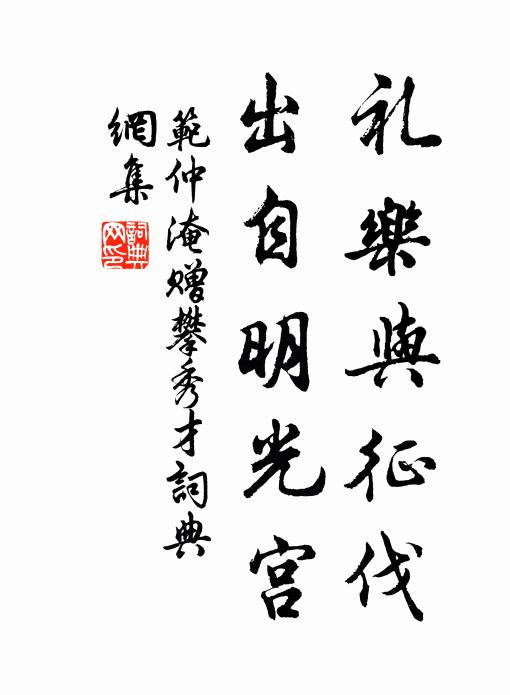 礼樂與征伐
出自明光宫
範仲淹贈攀秀才詞典
網集
詞典
网印